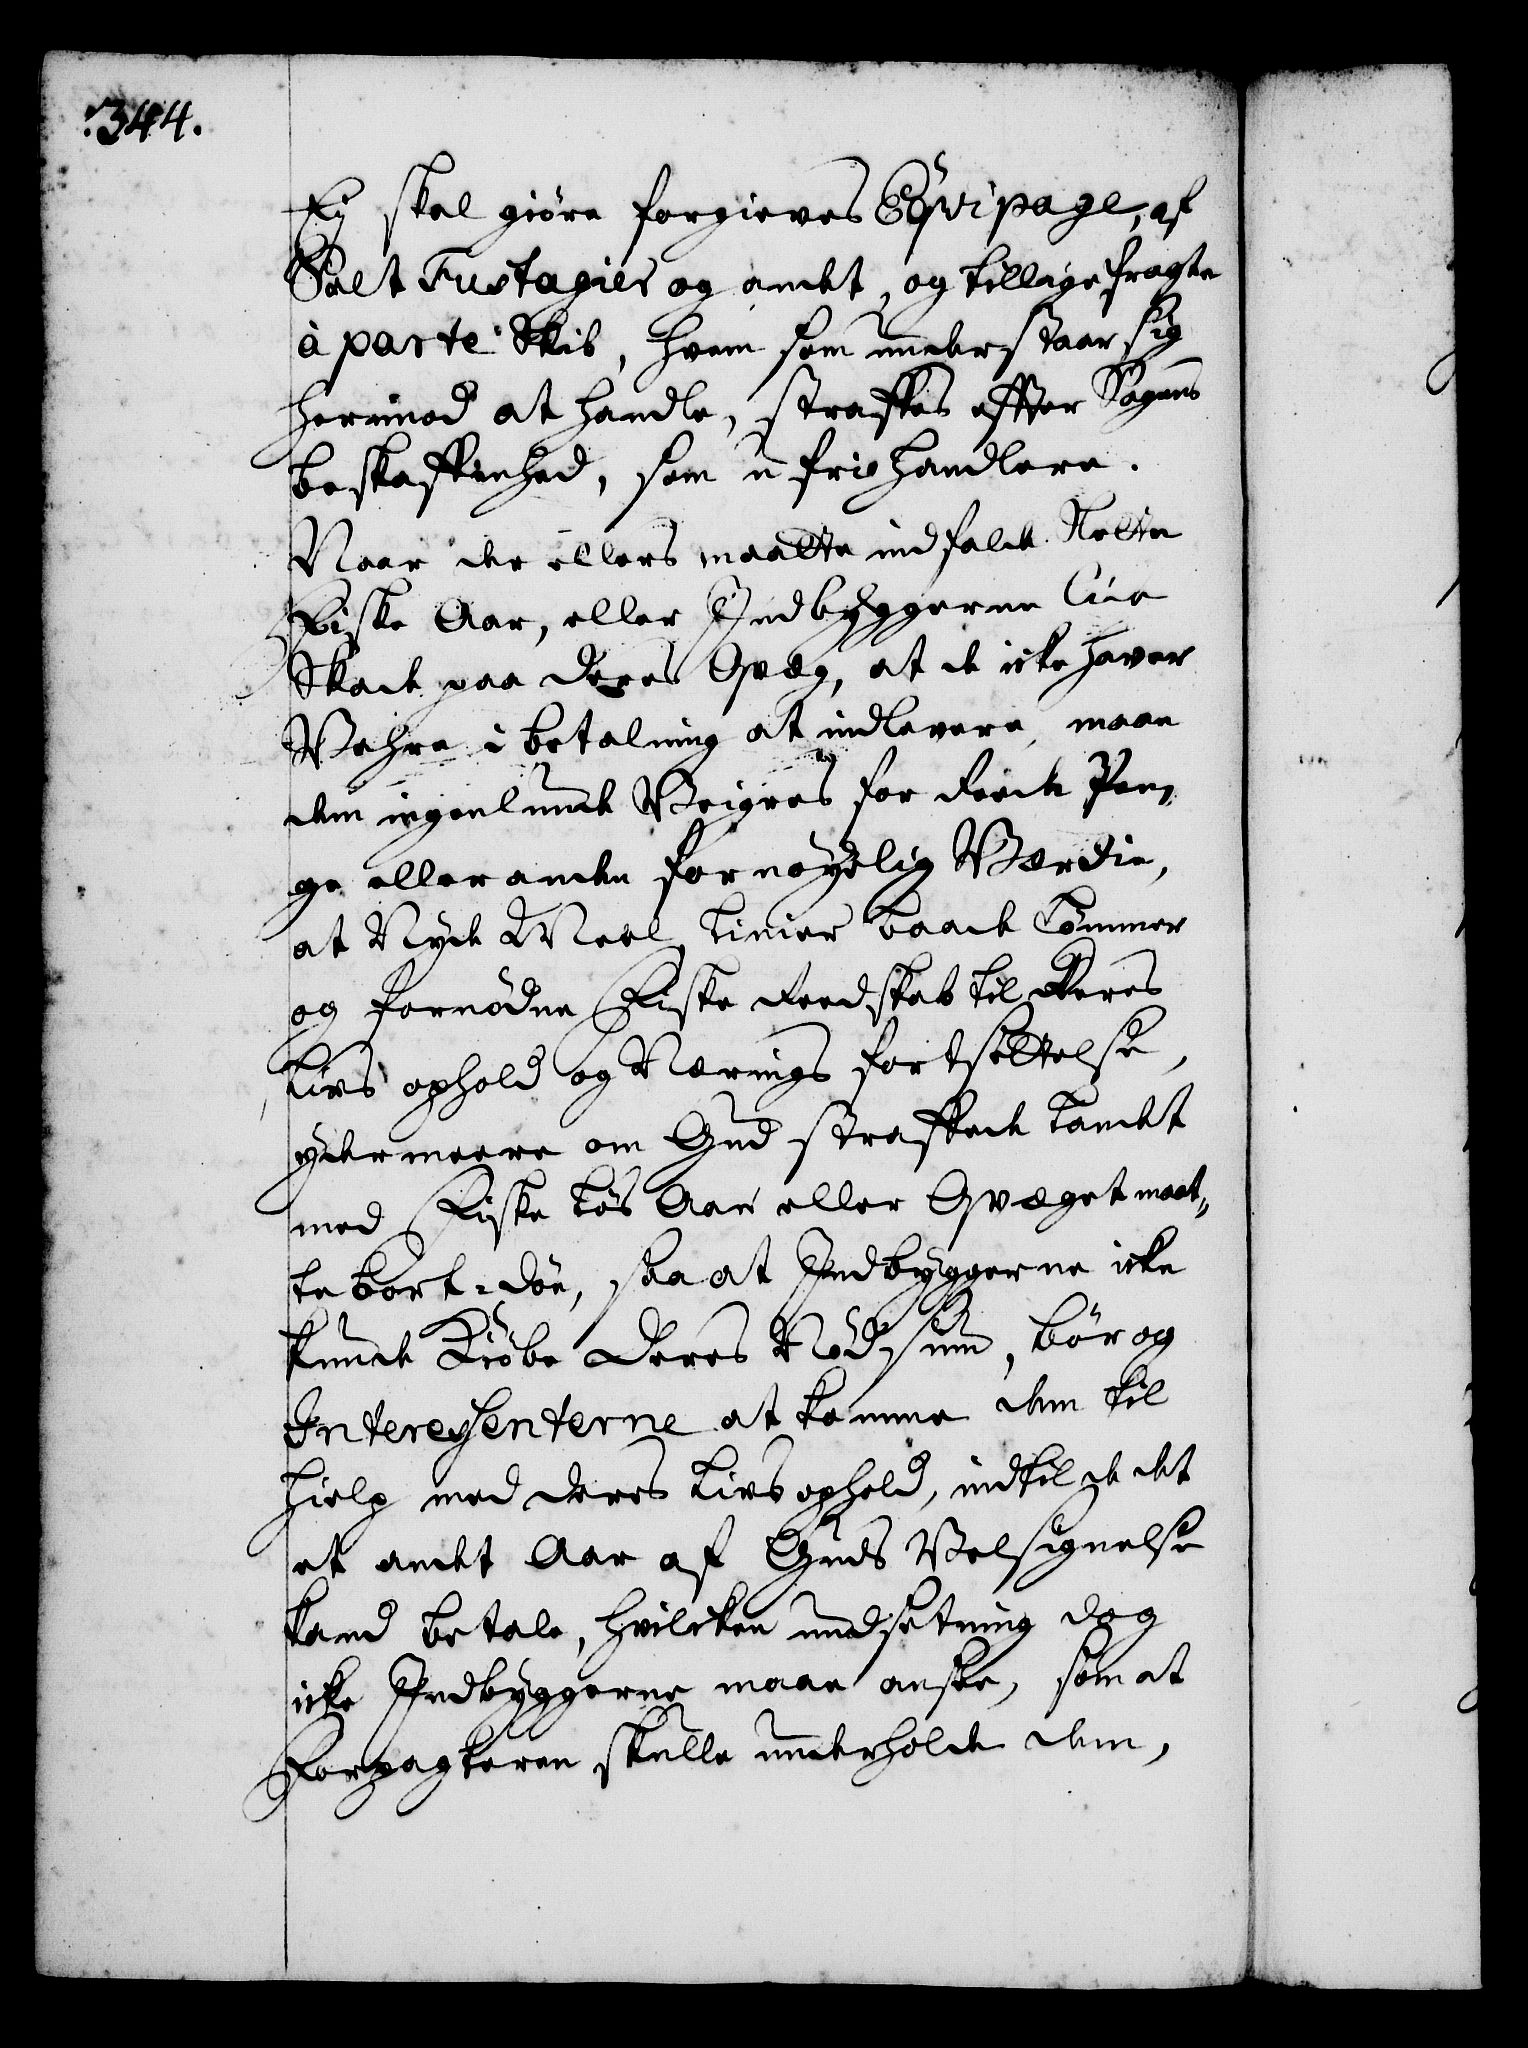 344.
Ej skal giöre forgieves Eqvipage, af
Salt Fustagier og andet, og tillige fragte
à parte Skib, hvem som understaar sig
herimod at handle, straffes effter Sagens
beskaffenhed, som u frie handlere.
Naar der ellers maatte indfalde Slette
Fiske Aar, eller Indbyggerne Lide
Skade paa deres Qvæg, at de icke haver
Vahre i betalning at indlevere, maae
dem ingenlunde Veigres for reede Pen-
ge eller anden fornøyelig Værdie,
at Nyde Meel, Linier baade Tömmer
og fornödne Fiske reedskab til deres
Livs ophold og Nærings fortsettelse,
ydermeere om Gud straffede Landet
med Fiske Lös Aar eller Qvæget maat-
te bort-döe, saa at Indbyggerne icke
kunde Kiöbe deres Nödsum, bör og
Interessenterne at komme dem til
hielp med deres Livs ophold, indtil de det
et andet Aar af Guds Velsignelse
kand betale, hvilcken undsetning dog
icke Indbyggerne maae anse, som at
Forpagteren skulle underholde dem,